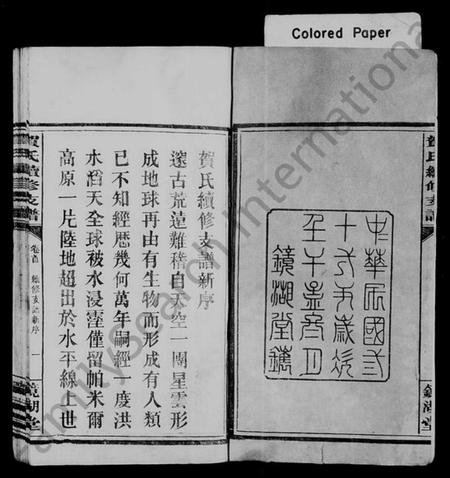 Colored Paper
賀氏續修支譜
中華民國三
十九年歲次
鏡湖堂鐫
鏡湖堂
賀氏續修支譜新序
邃古荒遠難稽自天空一團星雲形
成地球再由有生物而形成有人類
已不知經歷幾何萬年嗣經一度洪
水滔天全球被水浸霪僅留帕米爾
高原一片陸地超出於水平線上世
賀氏續修支譜
卷首
續修支譜新序
一
鏡湖堂
FamilySearch International